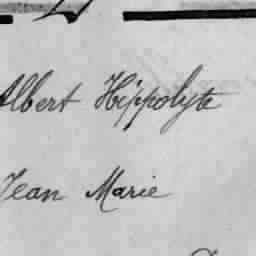 Albert Hippolyte
Jean Marie